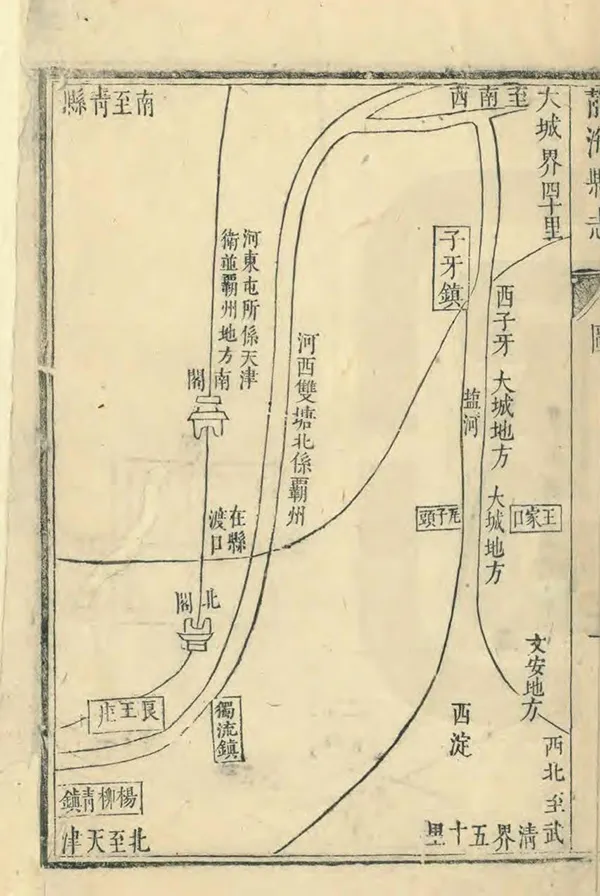 靜海縣志
圖
西南至大城界四十里
子牙鎮
西子牙大城地方
盐河
大城地方
王家口
瓦子頭
文安地方
西淀
西北至武清界五十里
河西雙塘北係霸州
河東屯所係天津
衛並霸州地方
南閣
在縣
渡口
北閣
獨流鎮
良王庄
楊柳青鎮
北至天津
南至青縣